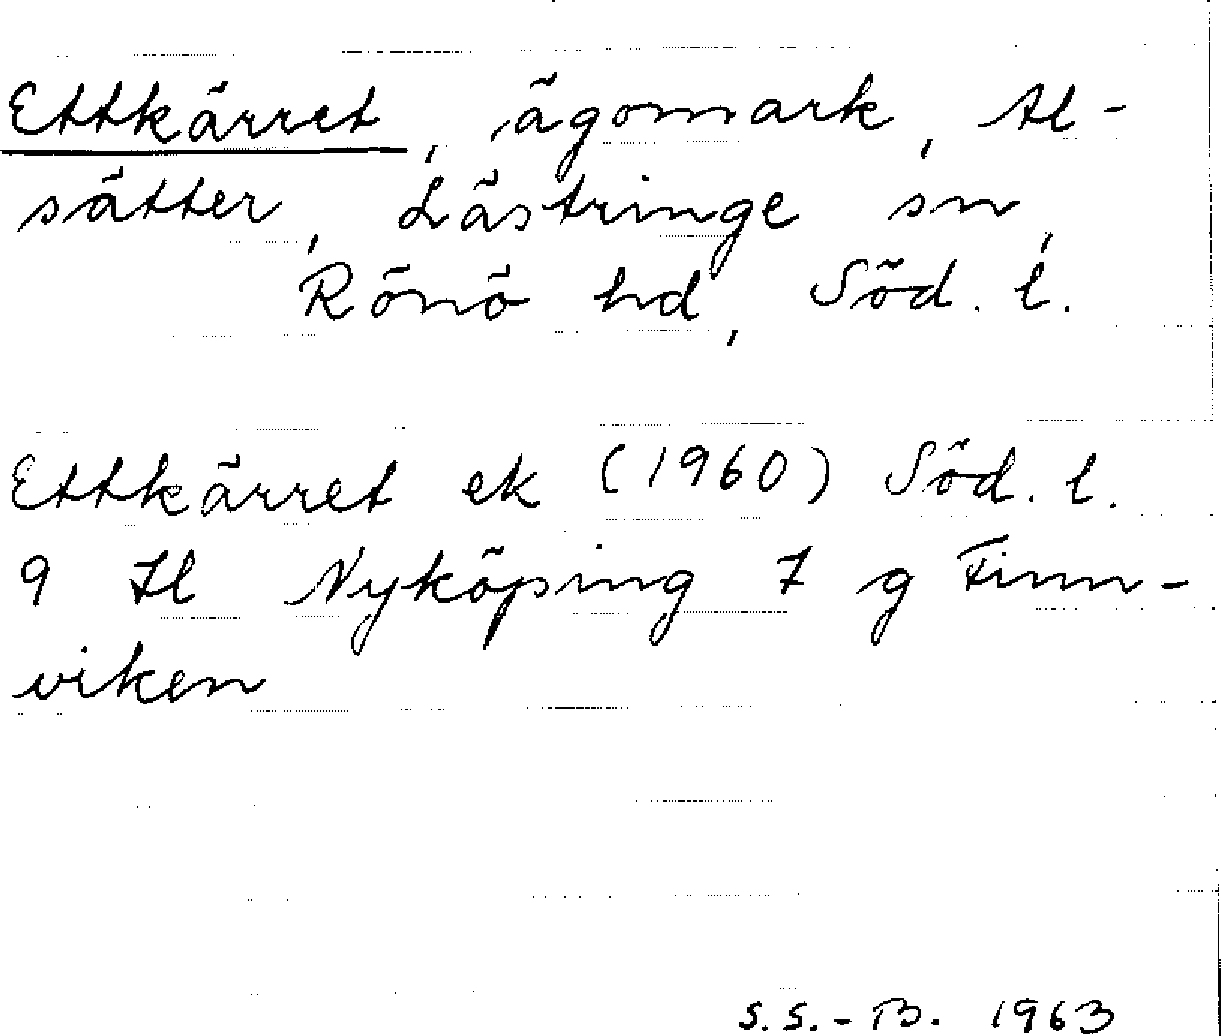 Ettkärret, ägomark, Al-
sätter, Lästringe sn,
Rönö hd, Söd. l.
Ettkärret ek (1960) Söd. l.
9 Il Nyköping 7 g Finn-
viken
S.S.-B. 1963